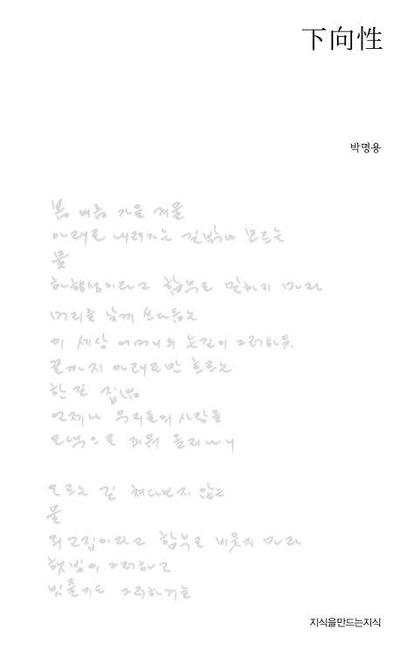 下向性
박명용
봄 여름 가을 겨울
아래로 내려가는 길밖에 모르는
물
하향성이라고 함부로 말하지 마라
머리를 낮게 쓰다듬는
이 세상 어머니의 눈길이 그러하듯
끝까지 아래로만 흐르는
한 길
언제나 우리들의 사랑을
로 채워 올리나니
오르는 길 쳐다보지 않는
물
외고집이라고 함부로 비웃지 마라
햇빛이 그러하고
빗줄기도 그러하거늘
지식을만드는지식